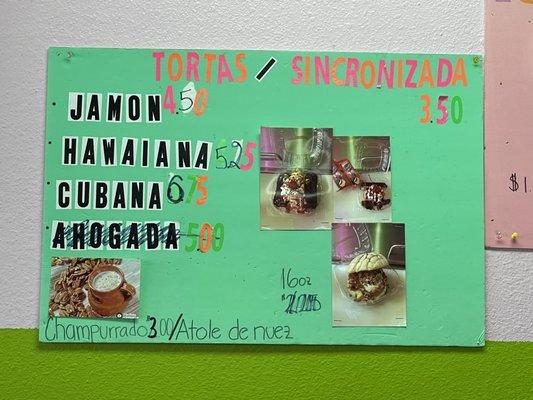 TORTAS / SINCRONIZADA
JAMON 4.50 3.50
HAWAIIANA 5.25
CUBANA 6.75
AHOGADA 5.00
16oz
Champurrado 3.00/Atole de nuez
$1.